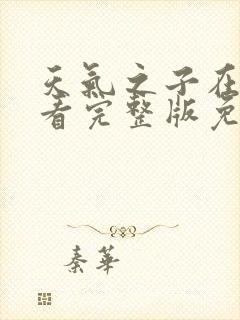 天氣之子在
看完整版免
秦華